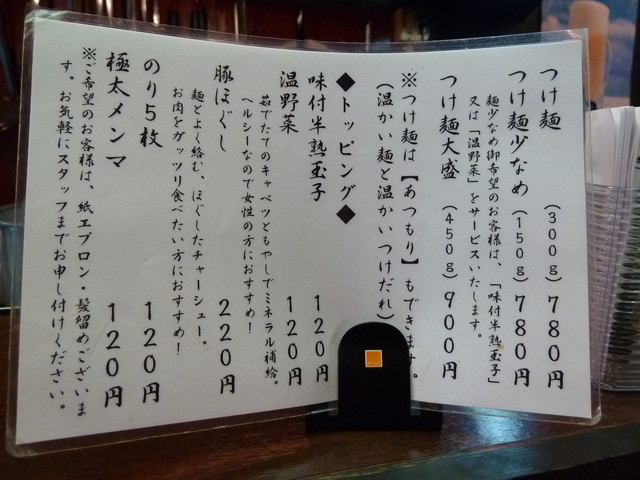 つけ麺 (300g) 780円
つけ麺少なめ (150g) 780円
麺少なめ御希望のお客様は、「味付半熟玉子」
又は「温野菜」をサービスいたします。
つけ麺大盛 (450g) 900円
※つけ麺は【あつもり】もできます。
(温かい麺と温かいつけだれ)
◆トッピング◆
味付半熟玉子 120円
温野菜 120円
茹でたてのキャベツともやしでミネラル補給。
ヘルシーなので女性の方におすすめ!
豚ほぐし 220円
麺とよく絡む、ほぐしたチャーシュー。
お肉をガッツリ食べたい方におすすめ!
のり5枚 120円
極太メンマ 120円
※ご希望のお客様は、紙エプロン・髪留めございま
す。お気軽にスタッフまでお申し付けください。